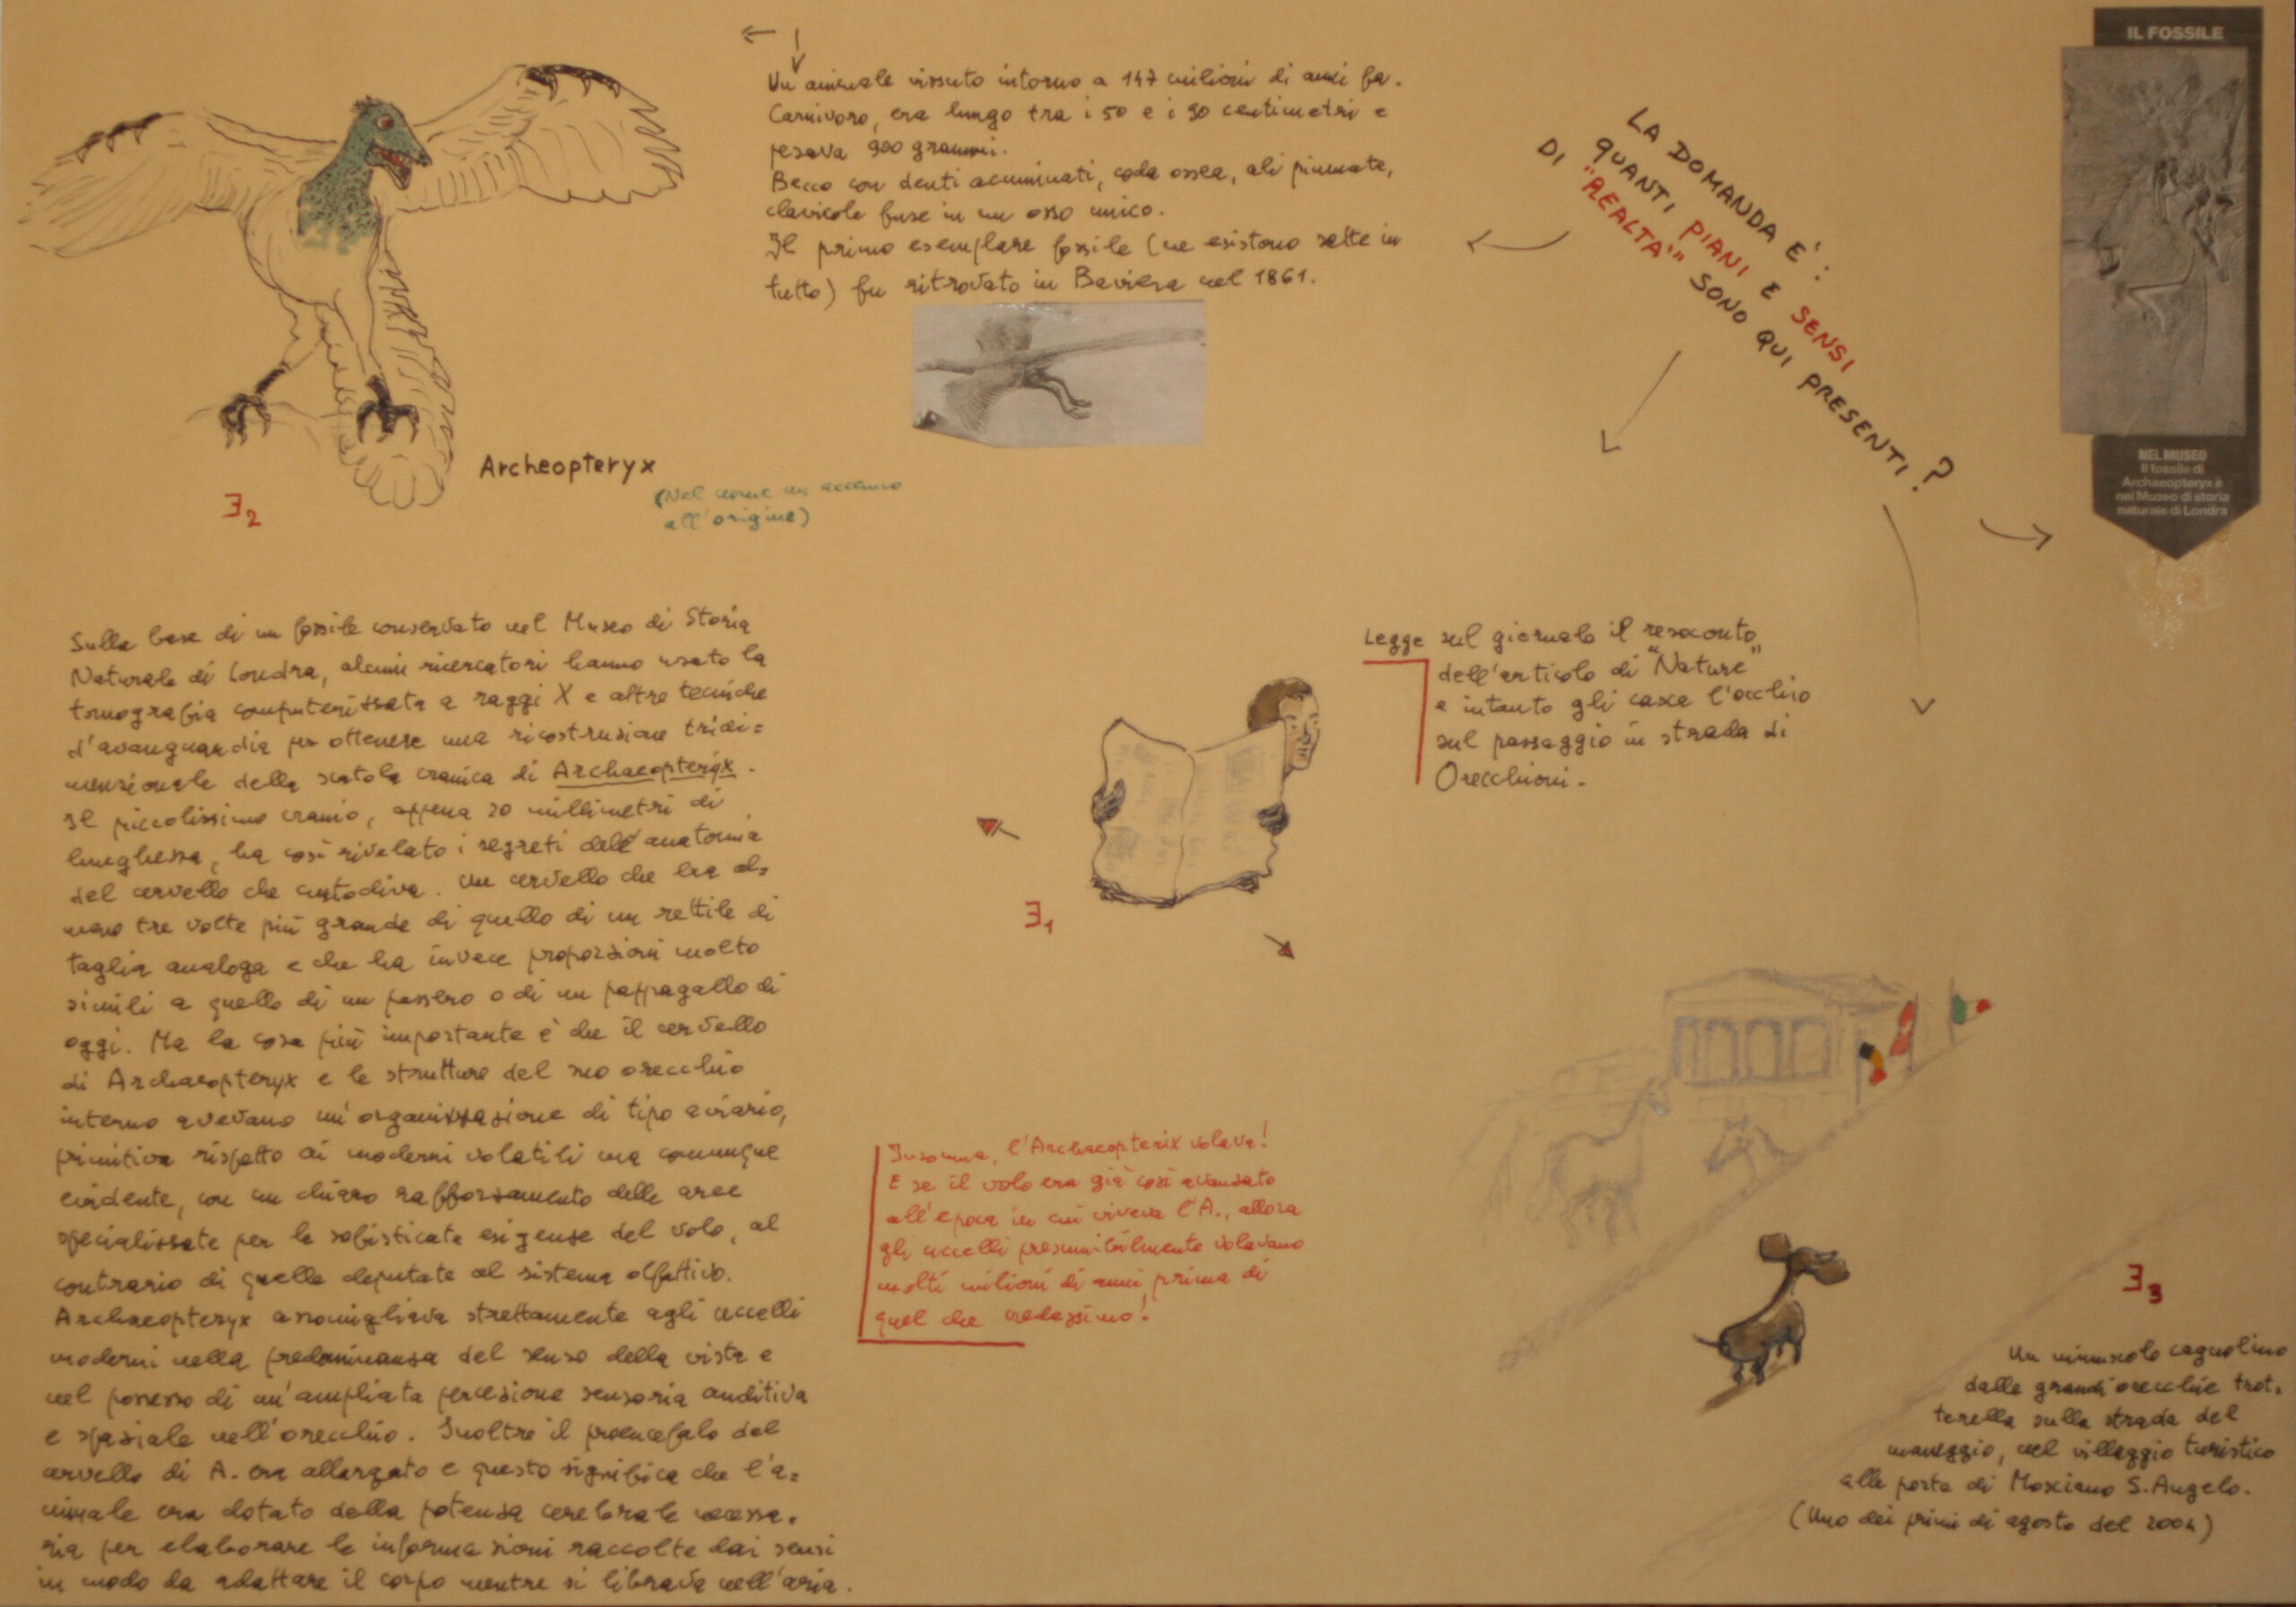 Un animale vissuto intorno a 147 milioni di anni fa.
Carnivoro, era lungo tra i 50 e i 90 centimetri e
pesava 900 grammi.
Becco con denti acuminati, coda ossea, ali piumate,
clavicole fuse in un osso unico.
Il primo esemplare fossile (ne esistono sette in
tutto) fu ritrovato in Baviera nel 1861.
LA DOMANDA E':
QUANTI PIANI E SENSI
DI "REALTA'" SONO QUI PRESENTI?
IL FOSSILE
NEL MUSEO
Il fossile di
Archaeopteryx è
nel Museo di storia
naturale di Londra
Archeopteryx
(Nel nome un accenno
all'origine)
∃2
Sulla base di un fossile conservato nel Museo di Storia
Naturale di Londra, alcuni ricercatori hanno usato la
tomografia computerizzata a raggi X e altre tecniche
d'avanguardia per ottenere una ricostruzione tridi=
mensionale della scatola cranica di Archaeopteryx.
Il piccolissimo cranio, appena 20 millimetri di
lunghezza, ha così rivelato i segreti dell'anatomia
del cervello che custodiva. Un cervello che era al=
meno tre volte più grande di quello di un rettile di
taglia analoga e che ha invece proporzioni molto
simili a quello di un passero o di un pappagallo di
oggi. Ma la cosa più importante è che il cervello
di Archaeopteryx e le strutture del suo orecchio
interno avevano un'organizzazione di tipo aviario,
primitiva rispetto ai moderni volatili ma comunque
evidente, con un chiaro rafforzamento delle aree
specializzate per le sofisticate esigenze del volo, al
contrario di quelle deputate al sistema olfattivo.
Archaeopteryx assomigliava strettamente agli uccelli
moderni nella predominanza del senso della vista e
nel possesso di un'ampliata percezione sensoria auditiva
e spaziale nell'orecchio. Inoltre il proencefalo del
cervello di A. era allargato e questo significa che l'a=
nimale era dotato della potenza cerebrale necessa=
ria per elaborare le informazioni raccolte dai sensi
in modo da adattare il corpo mentre si librava nell'aria.
Legge sul giornale il resoconto
dell'articolo di "Nature"
e intanto gli casca l'occhio
sul passaggio in strada di
Orecchioni.
∃1
Insomma, l'Archaeopterix volava!
E se il volo era già così avanzato
all'epoca in cui viveva l'A., allora
gli uccelli presumibilmente volavano
molti milioni di anni prima di
quel che credessimo!
∃3
Un minuscolo cagnolino
dalle grandi orecchie trot=
terella sulla strada del
maneggio, nel villaggio turistico
alle porte di Mosciano S. Angelo.
(Uno dei primi di agosto del 2004)